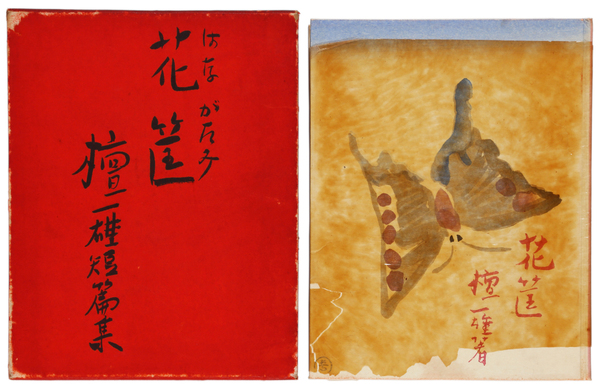 はな がたみ
花筐
檀一雄短篇集
花筐
檀一雄著